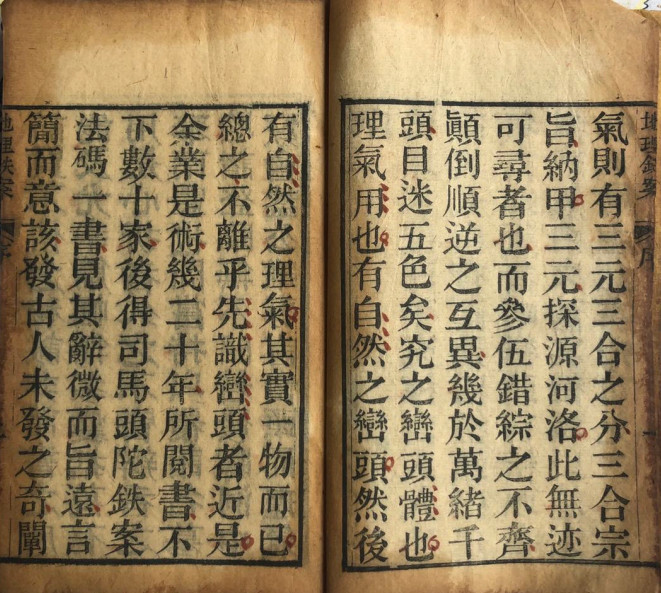 地理鉄案
序
氣則有三元三合之分三合宗
旨納甲三元探源河洛此無迹
可尋者也而參伍錯綜之不齊
顛倒順逆之互異幾於萬緒千
頭目迷五色矣究之巒頭體也
理氣用也有自然之巒頭然後
有自然之理氣其實一物而已
總之不離乎先識巒頭者近是
余業是術幾二十年所閱書不
下數十家後得司馬頭陀鉄案
法碼一書見其辭微而旨遠言
簡而意該發古人未發之奇闡
地理鉄案
序